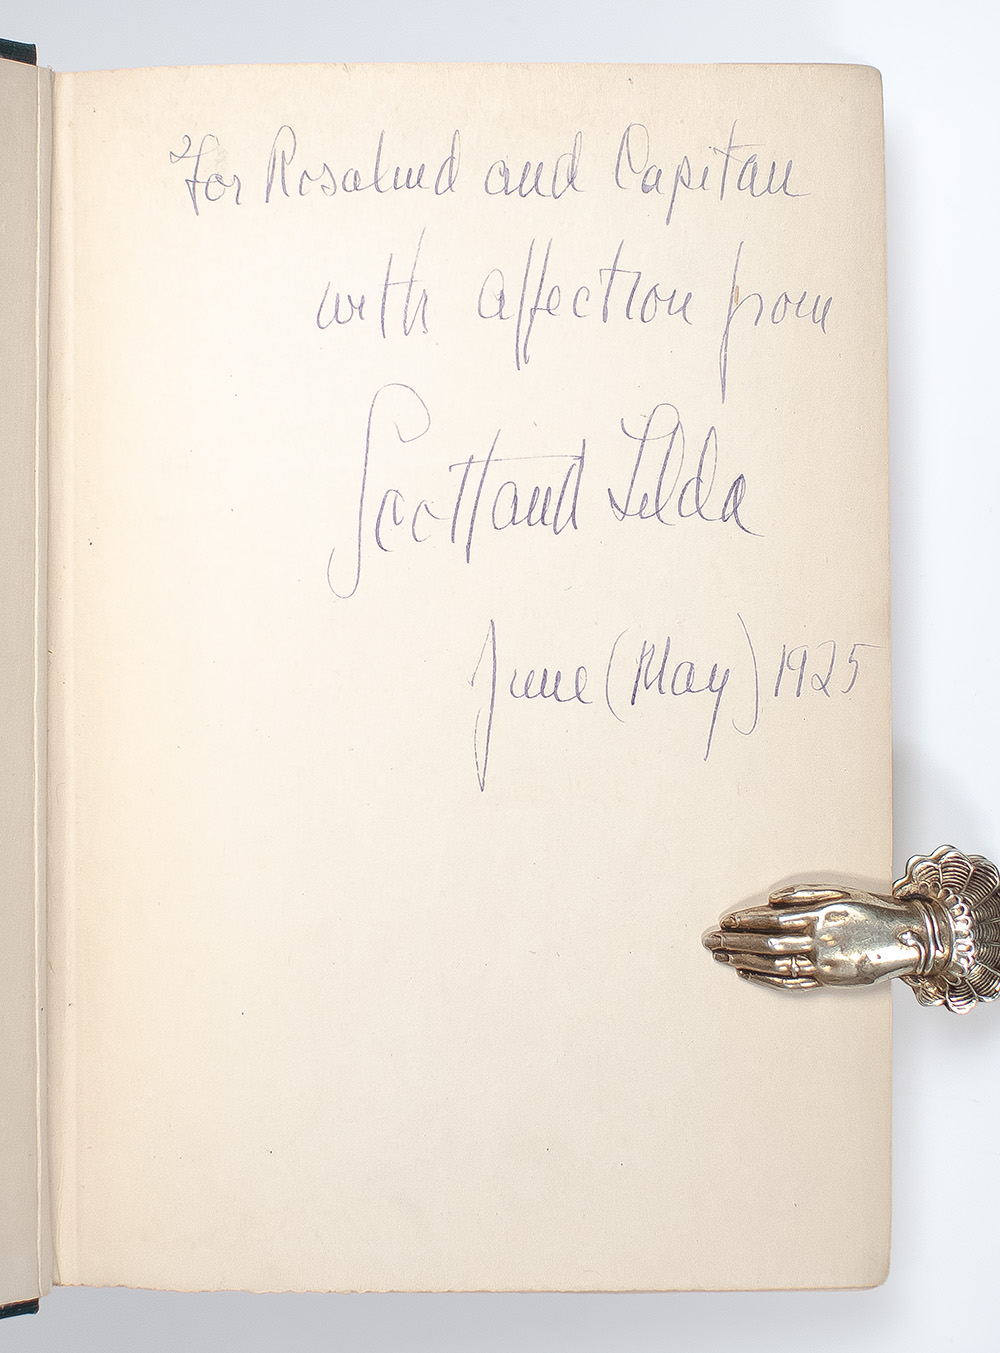 For Rosalind and Capitan
with affection from
Scott and Zelda
June (May) 1925